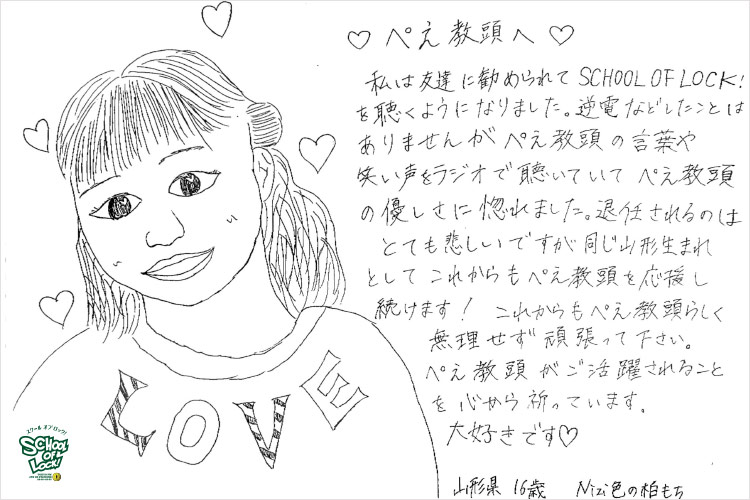 ♡ ぺえ教頭へ ♡
私は友達に勧められて SCHOOL OF LOCK!
を聴くようになりました。逆電などしたことは
ありませんが ぺえ教頭の言葉や
笑い声をラジオで聴いていて ぺえ教頭
の優しさに惚れました。退任されるのは
とても悲しいですが同じ山形生まれ
として これからも ぺえ教頭を応援し
続けます! これからも ぺえ教頭らしく
無理せず 頑張って下さい。
ぺえ教頭がご活躍されること
を心から祈っています。
大好きです♡
山形県 16歳 Nizi色の柏もち
LOVE
スクール オブ ロック!
SCHOOL
OF
LOCK!